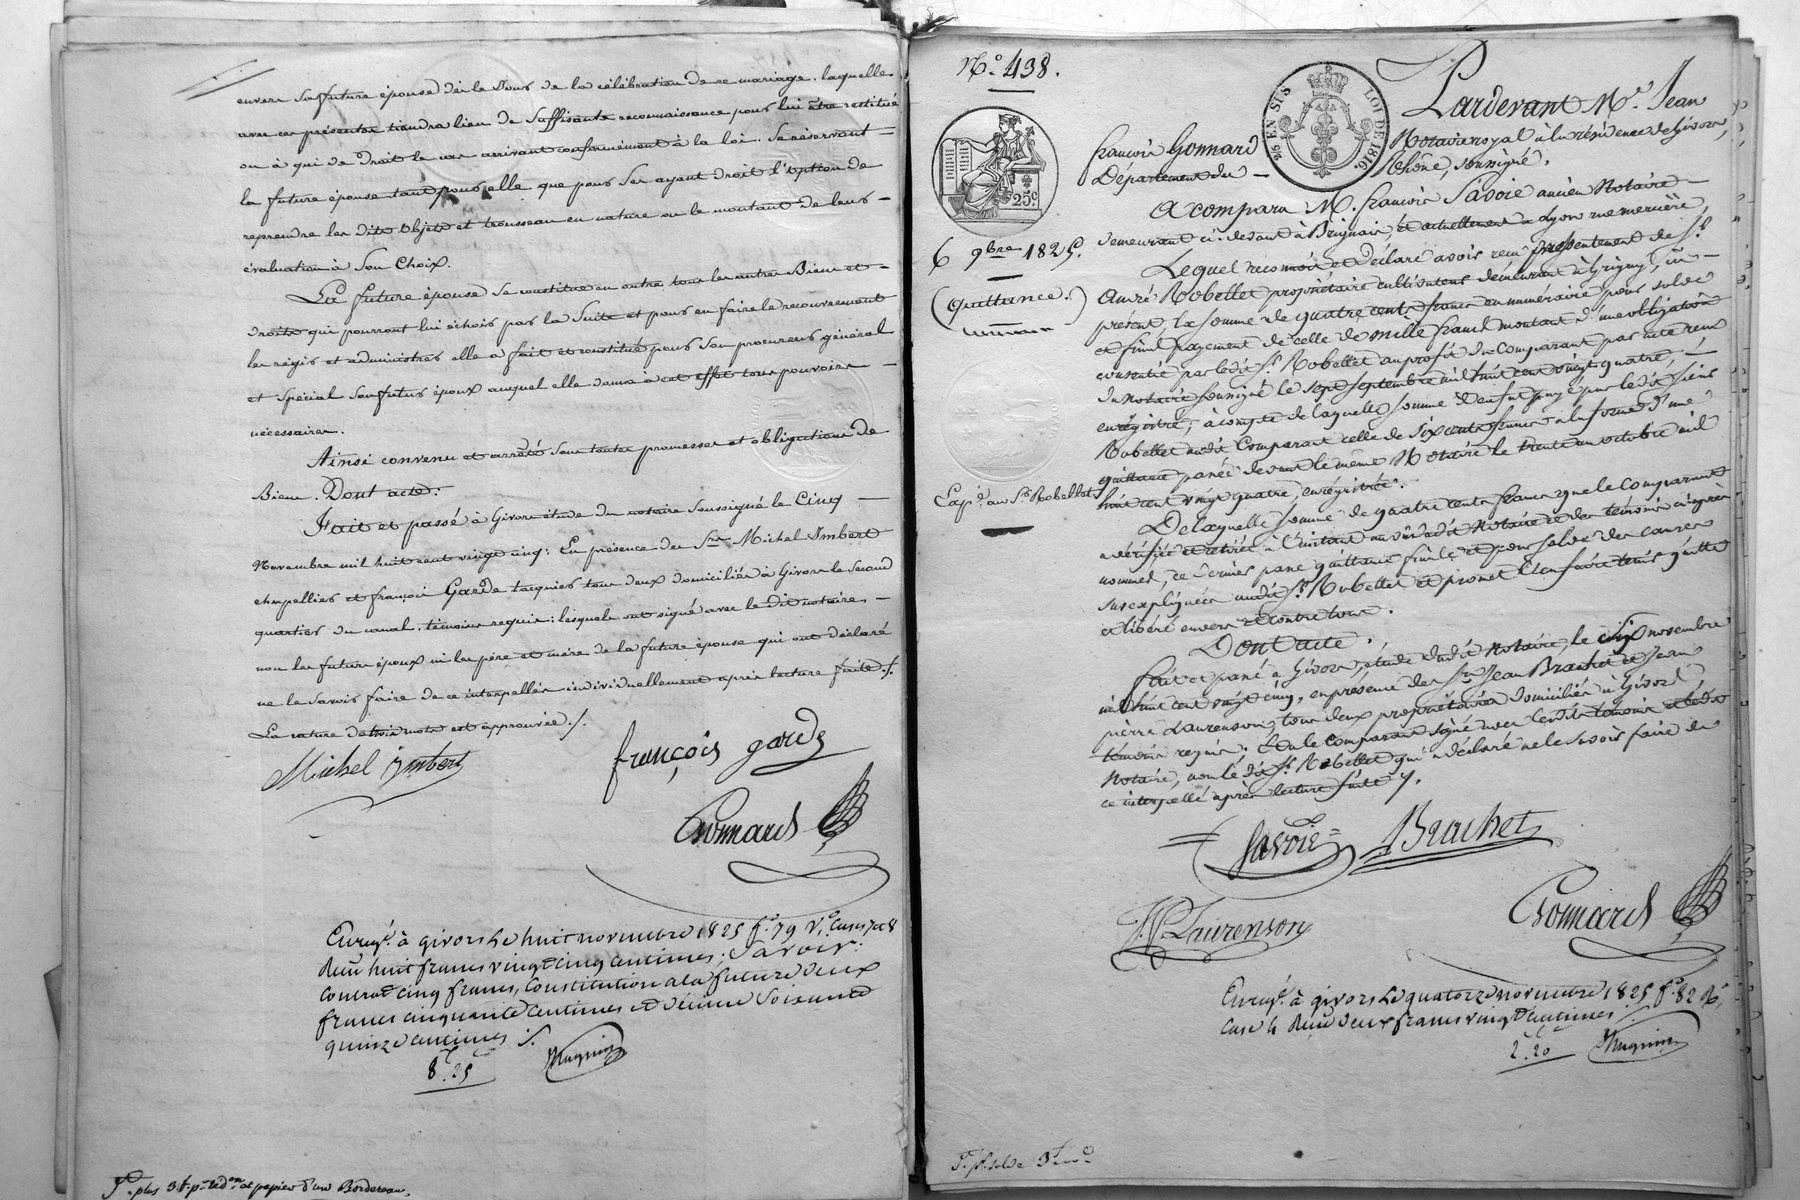 envers sa future épouse dès le Jour de la célébration de ce mariage, laquelle
avec ces présentes tiendra lieu de suffisante reconnaissance pour lui être restitué
ou à qui de Droit le cas arrivant conformément à la loi. Se réservant
la future épouse tant pour elle que pour ses ayant droit l'option de
reprendre les dits Objets et trousseau en nature ou le montant de leur
évaluation à Son Choix.
La future épouse Se constitue en outre tous les autres Biens et
droits qui pourront lui échoir par la Suite et pour en faire le recouvrement
les régir et administrer elle a fait et constitué pour Son procureur général
et Spécial Son futur époux auquel elle donne à cet effet tous pouvoirs
nécessaires.
Ainsi convenu et arrêté sous toutes promesses et obligations de
Biens. Dont acte.
Fait et passé à Givors étude du notaire Soussigné le Cinq
Novembre mil huit cent vingt cinq; En présence des Srs Michel Imbert
chapellier et françois Garde taquier tous deux domiciliés à Givors le Second
quartier du canal, témoins requis; lesquels ont signé avec le dit notaire,
non les futurs époux ni les père et mère de la future épouse qui ont déclaré
ne le Savoir faire de ce interpellés individuellement après lecture faite ./.
La rature de trois mots est approuvée ./.
Michel imbert
françois garde
Gonnard
Enregé. à givors Le huit novembre 1825 fo. 79 Vo. Cases 7 et 8
Reçu huit francs vingt cinq centimes; Savoir:
Contrat cinq francs, Constitution a la future deux
francs cinquante centimes et décime Soixante
quinze centimes ./.
8f. 25c
plus 3 f. pr. redon. et papier d'un Bordereau.
No. 438.
Pardevant Me. Jean
françois Gonnard
Notaire royal à la résidence de Givors,
Departement du
Rhône, soussigné.
2/5 EN SUS
LOI DE 1816.
25c
6 9bre 1825.
(quittance.)
Expé. au Sr. Robellet
A comparu M. françois Savoie ancien Notaire
demeurant ci-devant à Brignais, et actuellement à Lyon rue mercière,
Lequel reconnoit et déclare avoir reçu présentement de Sr.
André Robellet propriétaire cultivateur demeurant à Grigny, ici
présent, la somme de quatre cents francs en numéraire pour solde
et final payement de celle de mille francs montant d'une obligation
consentie par ledit Sr. Robellet au profit du Comparant par acte reçu
du Notaire soussigné le sept septembre mil huit cent vingt quatre,
enrégistré; à compte de laquelle somme il en fut payé par ledit sieur
Robellet audit Comparant celle de six cents francs a la forme d'une
quittance passée devant le même Notaire le trente un octobre mil
huit cent vingt quatre, enrégistrée.
De laquelle somme de quatre cents francs que le Comparant
a vérifiée et retirée à l'instant au vû dudit Notaire et des témoins ci après
nommés, ce dernier passe quittance finale et pour solde des causes
sus expliquées audit Sr. Robellet et promet l'en faire tenir quitte
et libéré envers et contre tous.
Dont acte.
Fait et passé à Givors, étude dudit Notaire, le six novembre
mil huit cent vingt cinq, en présence des Srs. Jean Brachet et Jean
pierre Laurenson, tous deux propriétaires domiciliés à Givors,
témoins requis. Et a le Comparant signé avec lesdits témoins et ledit
Notaire, non le dit Sr. Robellet qui a déclaré ne le savoir faire de
ce interpellé après lecture faite ./.
Savoie
Brachet
JP. Laurenson
Gonnard
Enregé. à givors Le quatorze novembre 1825 fo. 82 Ro.
Case 4 Reçu deux francs vingt centimes
2f. 20c